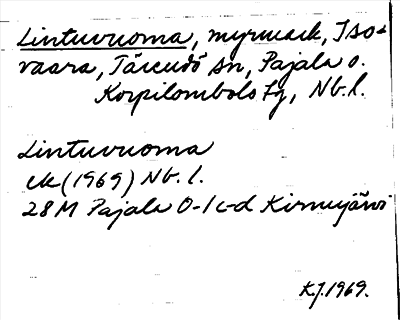 Lintuvuoma, myrmark, Iso-
vaara, Tärendö sn, Pajala o.
Korpilombolo tg, Nb. l.
Lintuvuoma
ek (1969) Nb. l.
28M Pajala 0-1 c-d Kirnujärvi
K.J. 1969.